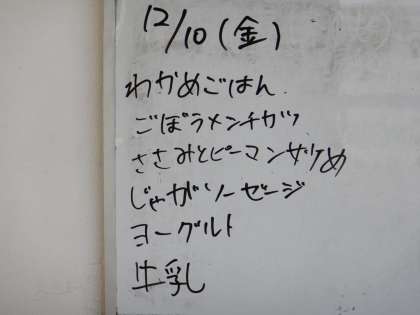 12/10(金)
わかめごはん
ごぼうメンチカツ
ささみとピーマン
じゃがソーセージ
ヨーグルト
牛乳